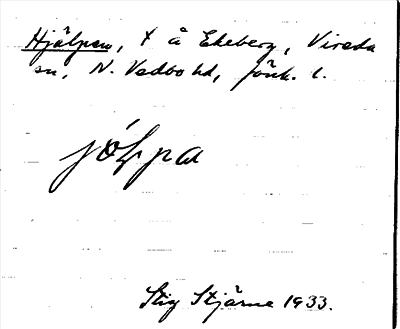 Hjälpen, t å Ekeberg, Vireda
sn, N. Vedbo hd, Jönk. l.
jö́lpa
Stig Stjärne 1933.